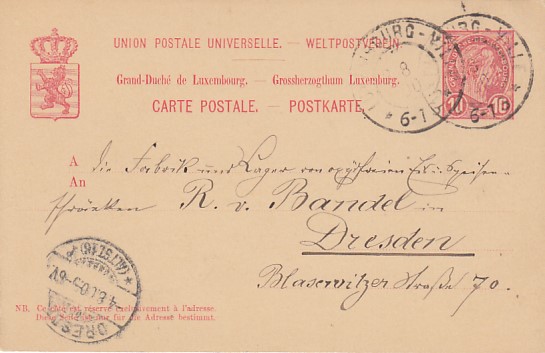 UNION POSTALE UNIVERSELLE. – WELTPOSTVEREIN.
Grand-Duché de Luxembourg. – Grossherzogthum Luxemburg.
CARTE POSTALE. – POSTKARTE.
BOURG-VIL
8
* 6-1
URG-VILLE
* 6-1
10 10
A
An
die Fabrik und Lager von Eis u. Speisen-
schränken R. v. Bandel in
Dresden
Blasewitzer Straße 70.
DRESD
(ALTST. 16)
NB. Ce côté est réservé exclusivement à l'adresse.
Diese Seite ist nur für die Adresse bestimmt.